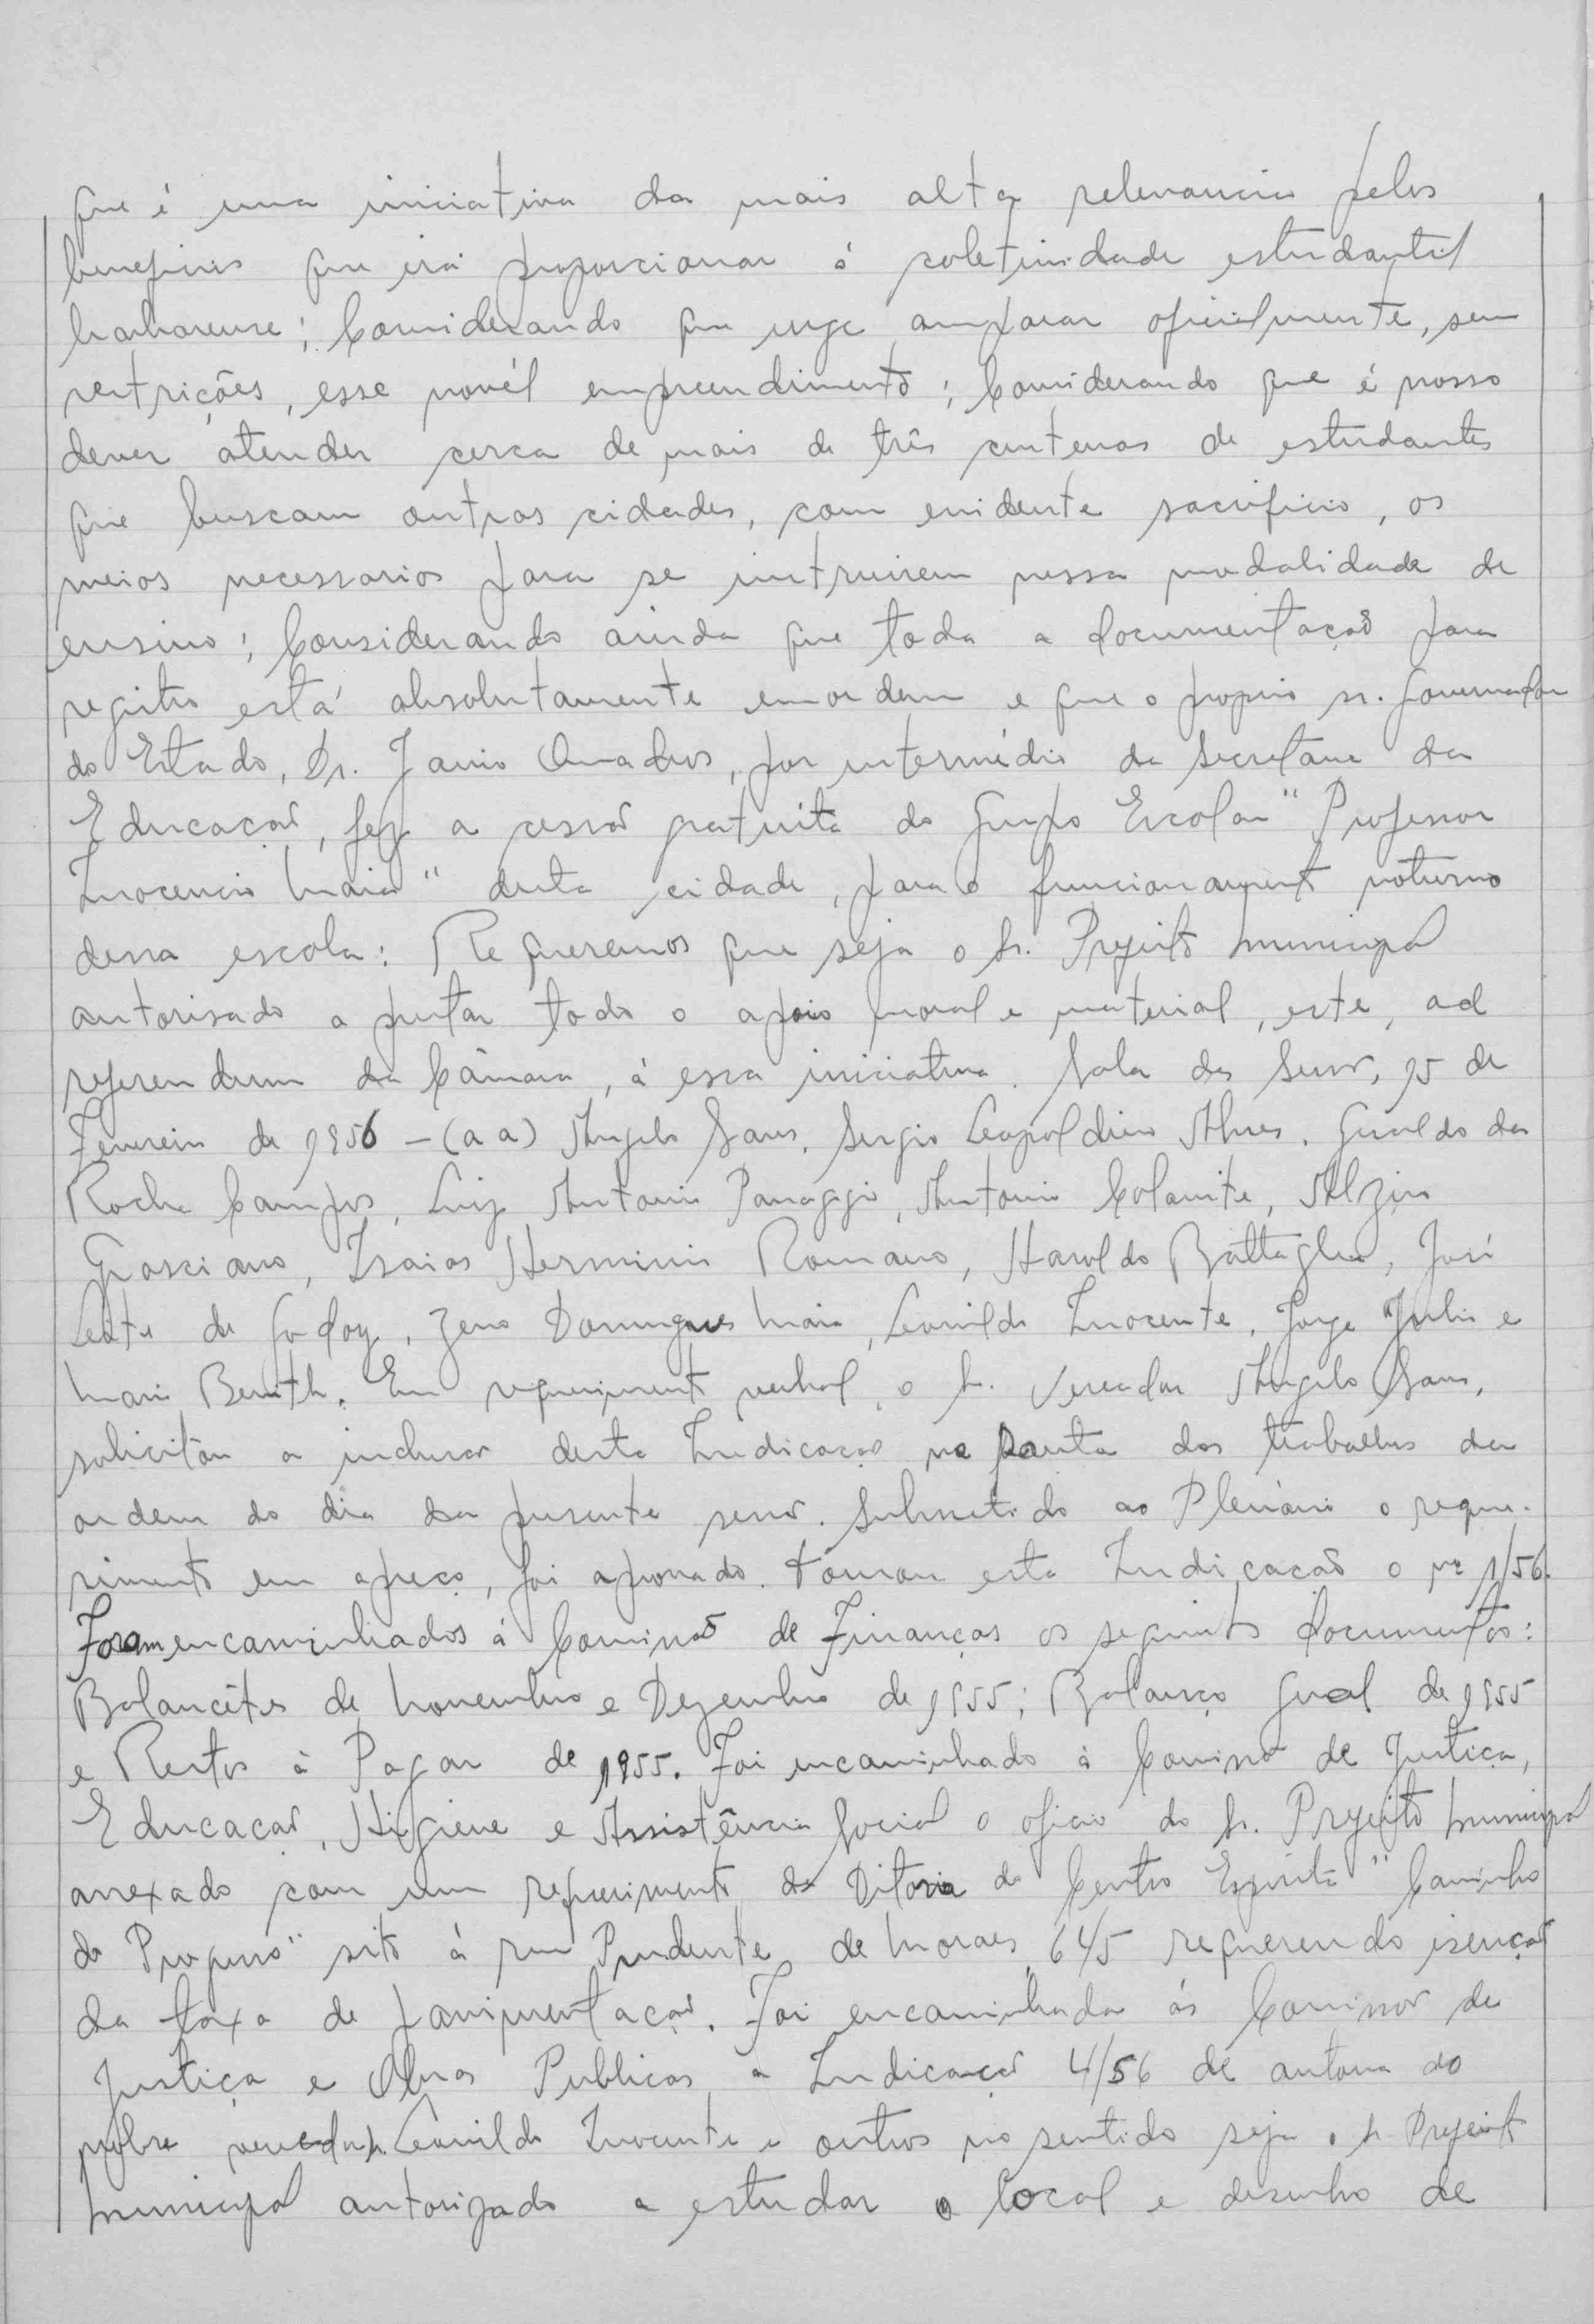 que é uma iniciativa da mais alta relevancia pelos
beneficios que irá proporcionar á coletividade estudantil
barbarense; Considerando que urge amparar oficialmente, sem
restrições, esse novél empreendimento; Considerando que é nosso
dever atender cerca de mais de três centenas de estudantes
que buscam outras cidades, com evidente sacrificio, os
meios necessarios para se instruirem nessa modalidade de
ensino; Considerando ainda que toda a documentação para
registro está absolutamente em ordem e que o proprio sr. Governador
do Estado, Dr. Janio Quadros, por intermédio da Secretaria da
Educação, fez a cessão gratuita do Grupo Escolar "Professor
Inocencio Maia" desta cidade, para o funcionamento noturno
dessa escola: Requeremos que seja o Sr. Prefeito Municipal
autorisado a prestar todo o apoio moral e material, este, ad
referendum da Câmara, á essa iniciativa. Sala das Sessões, 15 de
Fevereiro de 1956 - (a a) Angelo Sans, Sergio Leopoldino Alves, Geraldo da
Rocha Campos, Luiz Antonio Panaggio, Antonio Colamite, Alzira
Grasciano, Izaias Herminio Romano, Haroldo Battaglia, José
Leite de Godoy, Zeno Domingues Maia, Leonildo Inocente, Jorge Julio e
Mario Benith. Em requerimento verbal, o Sr. Vereador Angelo Sans,
solicitou a inclusão desta Indicação na pauta dos trabalhos da
ordem do dia da presente sessão. Submetido ao Plenário o reque-
rimento em apreço, foi aprovado. Tomou esta Indicação o nº 1/56.
Foram encaminhados á Comissão de Finanças os seguintes documentos:
Balancêtes de Novembro e Dezembro de 1955; Balanço Geral de 1955
e Restos á Pagar de 1955. Foi encaminhado á Comissão de Justiça,
Educação, Higiene e Assistência Social o oficio do Sr. Prefeito Municipal
anexado com um requerimento da Ditoria do Centro Espirita "Caminho
do Progresso" sito á rua Prudente de Moraes, 645 requerendo isenção
da taxa de pavimentação. Foi encaminhada ás Comissões de
Justiça e Obras Publicas a Indicação 4/56 de autoria do
nobre vereador sr. Leonildo Inocente e outros no sentido seja o Sr. Prefeito
Municipal autorizado a estudar o local e desenho de